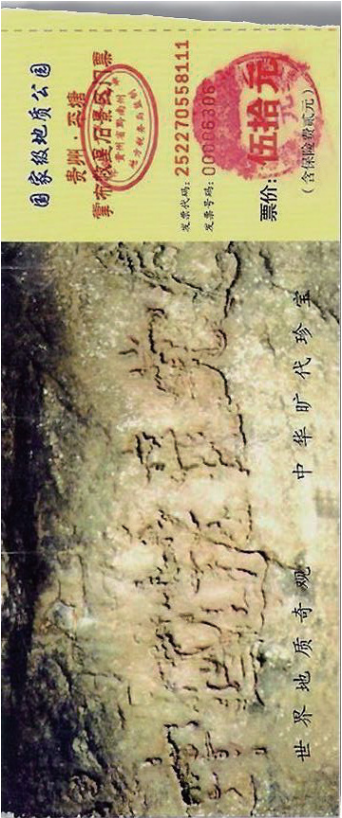 国家级地质公园
贵州 . 平塘
景区门票
贵州省黔南州
地方税务局监制
发票代码: 252270558111
发票号码:
票价: 伍拾元
(含保险费贰元)
世界地质奇观 中华旷代珍宝